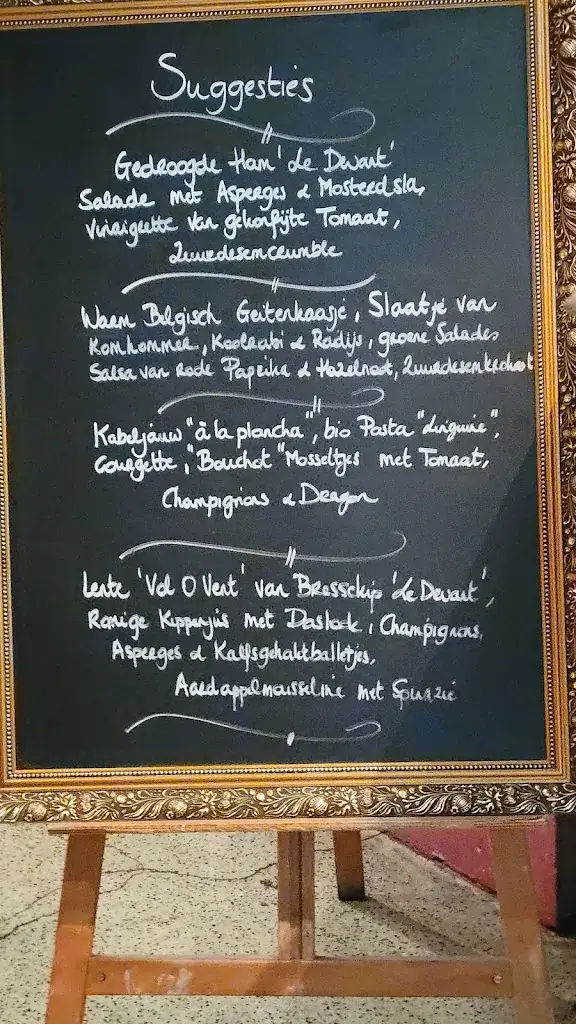 Suggesties
Gedroogde Ham 'de Dewart'
Salade met Asperges & Mosterdsla,
Vinaigrette van gekonfijte Tomaat,
Zuurdesemcrumble
Warm Belgisch Geitenkaasje, Slaatje van
Komkommer, Koolrabi & Radijs, groene Salades
Salsa van rode Paprika & Hazelnoot, Zuurdesemkrokant
Kabeljauw "à la plancha", bio Pasta "linguine",
Courgette, "Bouchot" Mosseltjes met Tomaat,
Champignons & Dragon
Lente 'Vol O Vent' van Bressekip 'de Dewart',
Romige Kippenjus met Daslook, Champignons,
Asperges & Kalfsgehaktballetjes,
Aardappelmousseline met Spinazie